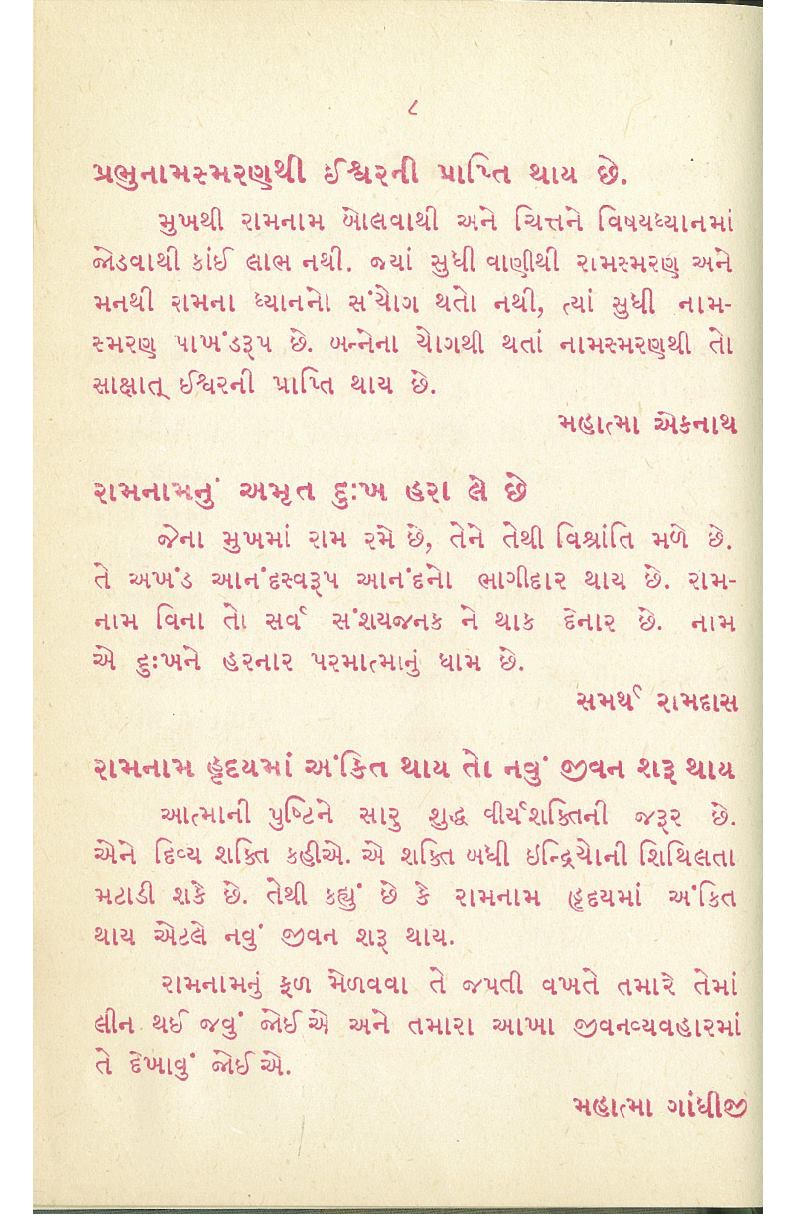 ૮
પ્રભુનામસ્મરણથી ઈશ્વરની પ્રાપ્તિ થાય છે.
મુખથી રામનામ બોલવાથી અને ચિત્તને વિષયધ્યાનમાં
જોડવાથી કાંઈ લાભ નથી. જ્યાં સુધી વાણીથી રામસ્મરણ અને
મનથી રામના ધ્યાનનો સંયોગ થતો નથી, ત્યાં સુધી નામ-
સ્મરણ પાખંડરૂપ છે. બન્નેના યોગથી થતાં નામસ્મરણથી તો
સાક્ષાત્ ઈશ્વરની પ્રાપ્તિ થાય છે.
મહાત્મા એકનાથ
રામનામનું અમૃત દુઃખ હરા લે છે
જેના મુખમાં રામ રમે છે, તેને તેથી વિશ્રાંતિ મળે છે.
તે અખંડ આનંદસ્વરૂપ આનંદનો ભાગીદાર થાય છે. રામ-
નામ વિના તો સર્વ સંશયજનક ને થાક દેનાર છે. નામ
એ દુઃખને હરનાર પરમાત્માનું ધામ છે.
સમર્થ રામદાસ
રામનામ હૃદયમાં અંકિત થાય તો નવું જીવન શરૂ થાય
આત્માની પુષ્ટિને સારુ શુદ્ધ વીર્યશક્તિની જરૂર છે.
એને દિવ્ય શક્તિ કહીએ. એ શક્તિ બધી ઇન્દ્રિયોની શિથિલતા
મટાડી શકે છે. તેથી કહ્યું છે કે રામનામ હૃદયમાં અંકિત
થાય એટલે નવું જીવન શરૂ થાય.
રામનામનું ફળ મેળવવા તે જપતી વખતે તમારે તેમાં
લીન થઈ જવું જોઈએ અને તમારા આખા જીવનવ્યવહારમાં
તે દેખાવું જોઈએ.
મહાત્મા ગાંધીજી